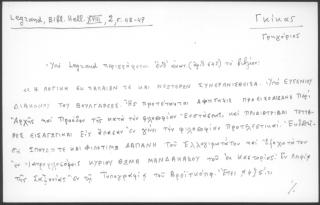 Legrand, Bibl. Hell. XVIII, 2, σ. 46-47
Γκίκας
Γρηγόριος
Ὑπὸ Legrand περιγράφεται ὑπ' ἀριθ. (ἀριθ. 645) τὸ βιβλίον:
«Η ΛΟΓΙΚΗ ΕΚ ΠΑΛΑΙΩΝ ΤΕ ΚΑΙ ΝΕΩΤΕΡΩΝ ΣΥΝΕΡΑΝΙΣΘΕΙΣΑ. ΥΠΟ ΕΥΓΕΝΙΟΥ
ΔΙΑΚΟΝΟΥ ΤΟΥ ΒΟΥΛΓΑΡΕΩΣ. Ἧς ΠΡΟΤΕΤΑΚΤΑΙ ΑΦΗΓΗΣΙΣ ΠΡΟΕΙΣΟΔΙΩΔΗΣ Περὶ
Ἀρχῆς καὶ Προόδου τῆς κατὰ τὴν Φιλοσοφίαν Ἐνστάσεως, ΚΑΙ ΠΡΟΔΙΑΤΡΙΒΑΙ ΤΕΤΤΑ-
ΡΕΣ ΕΙΣΑΓΩΓΙΚΑΙ Εἰς ἅπασαν ἐν γένει τὴν φιλοσοφίαν ΠΡΟΤΕΛΕΣΤΙΚΑΙ. Ἐκδοθεῖ-
σα ΣΠΟΥΔῌ ΤΕ ΚΑΙ ΦΙΛΟΤΙΜῼ ΔΑΠΑΝῌ τοῦ Ἐλλογιμωτάτου καὶ Ἐξοχωτάτου
ἐν Ἰατροφιλοσόφοις ΚΥΡΙΟΥ ΘΩΜΑ ΜΑΝΔΑΚΑΣΟΥ τοῦ ἐκ Καστορίας. Ἐν Λειψίᾳ
τῆς Σαξονίας ἐν τῇ Τυπογραφίᾳ τοῦ Βρεϊτκόπφ. Ἔτει αψξϛ
·/.